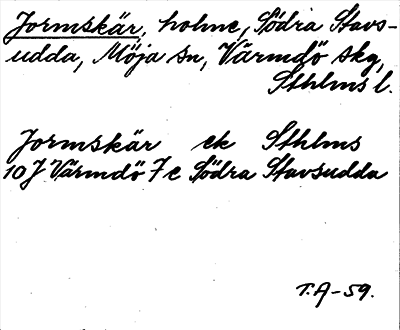 Jormskär, holme, Södra Stavs-
udda, Möja sn, Värmdö skg,
Sthlms l.
Jormskär ek Sthlms
10 J Värmdö 7 c Södra Stavsudda
T.A-59.